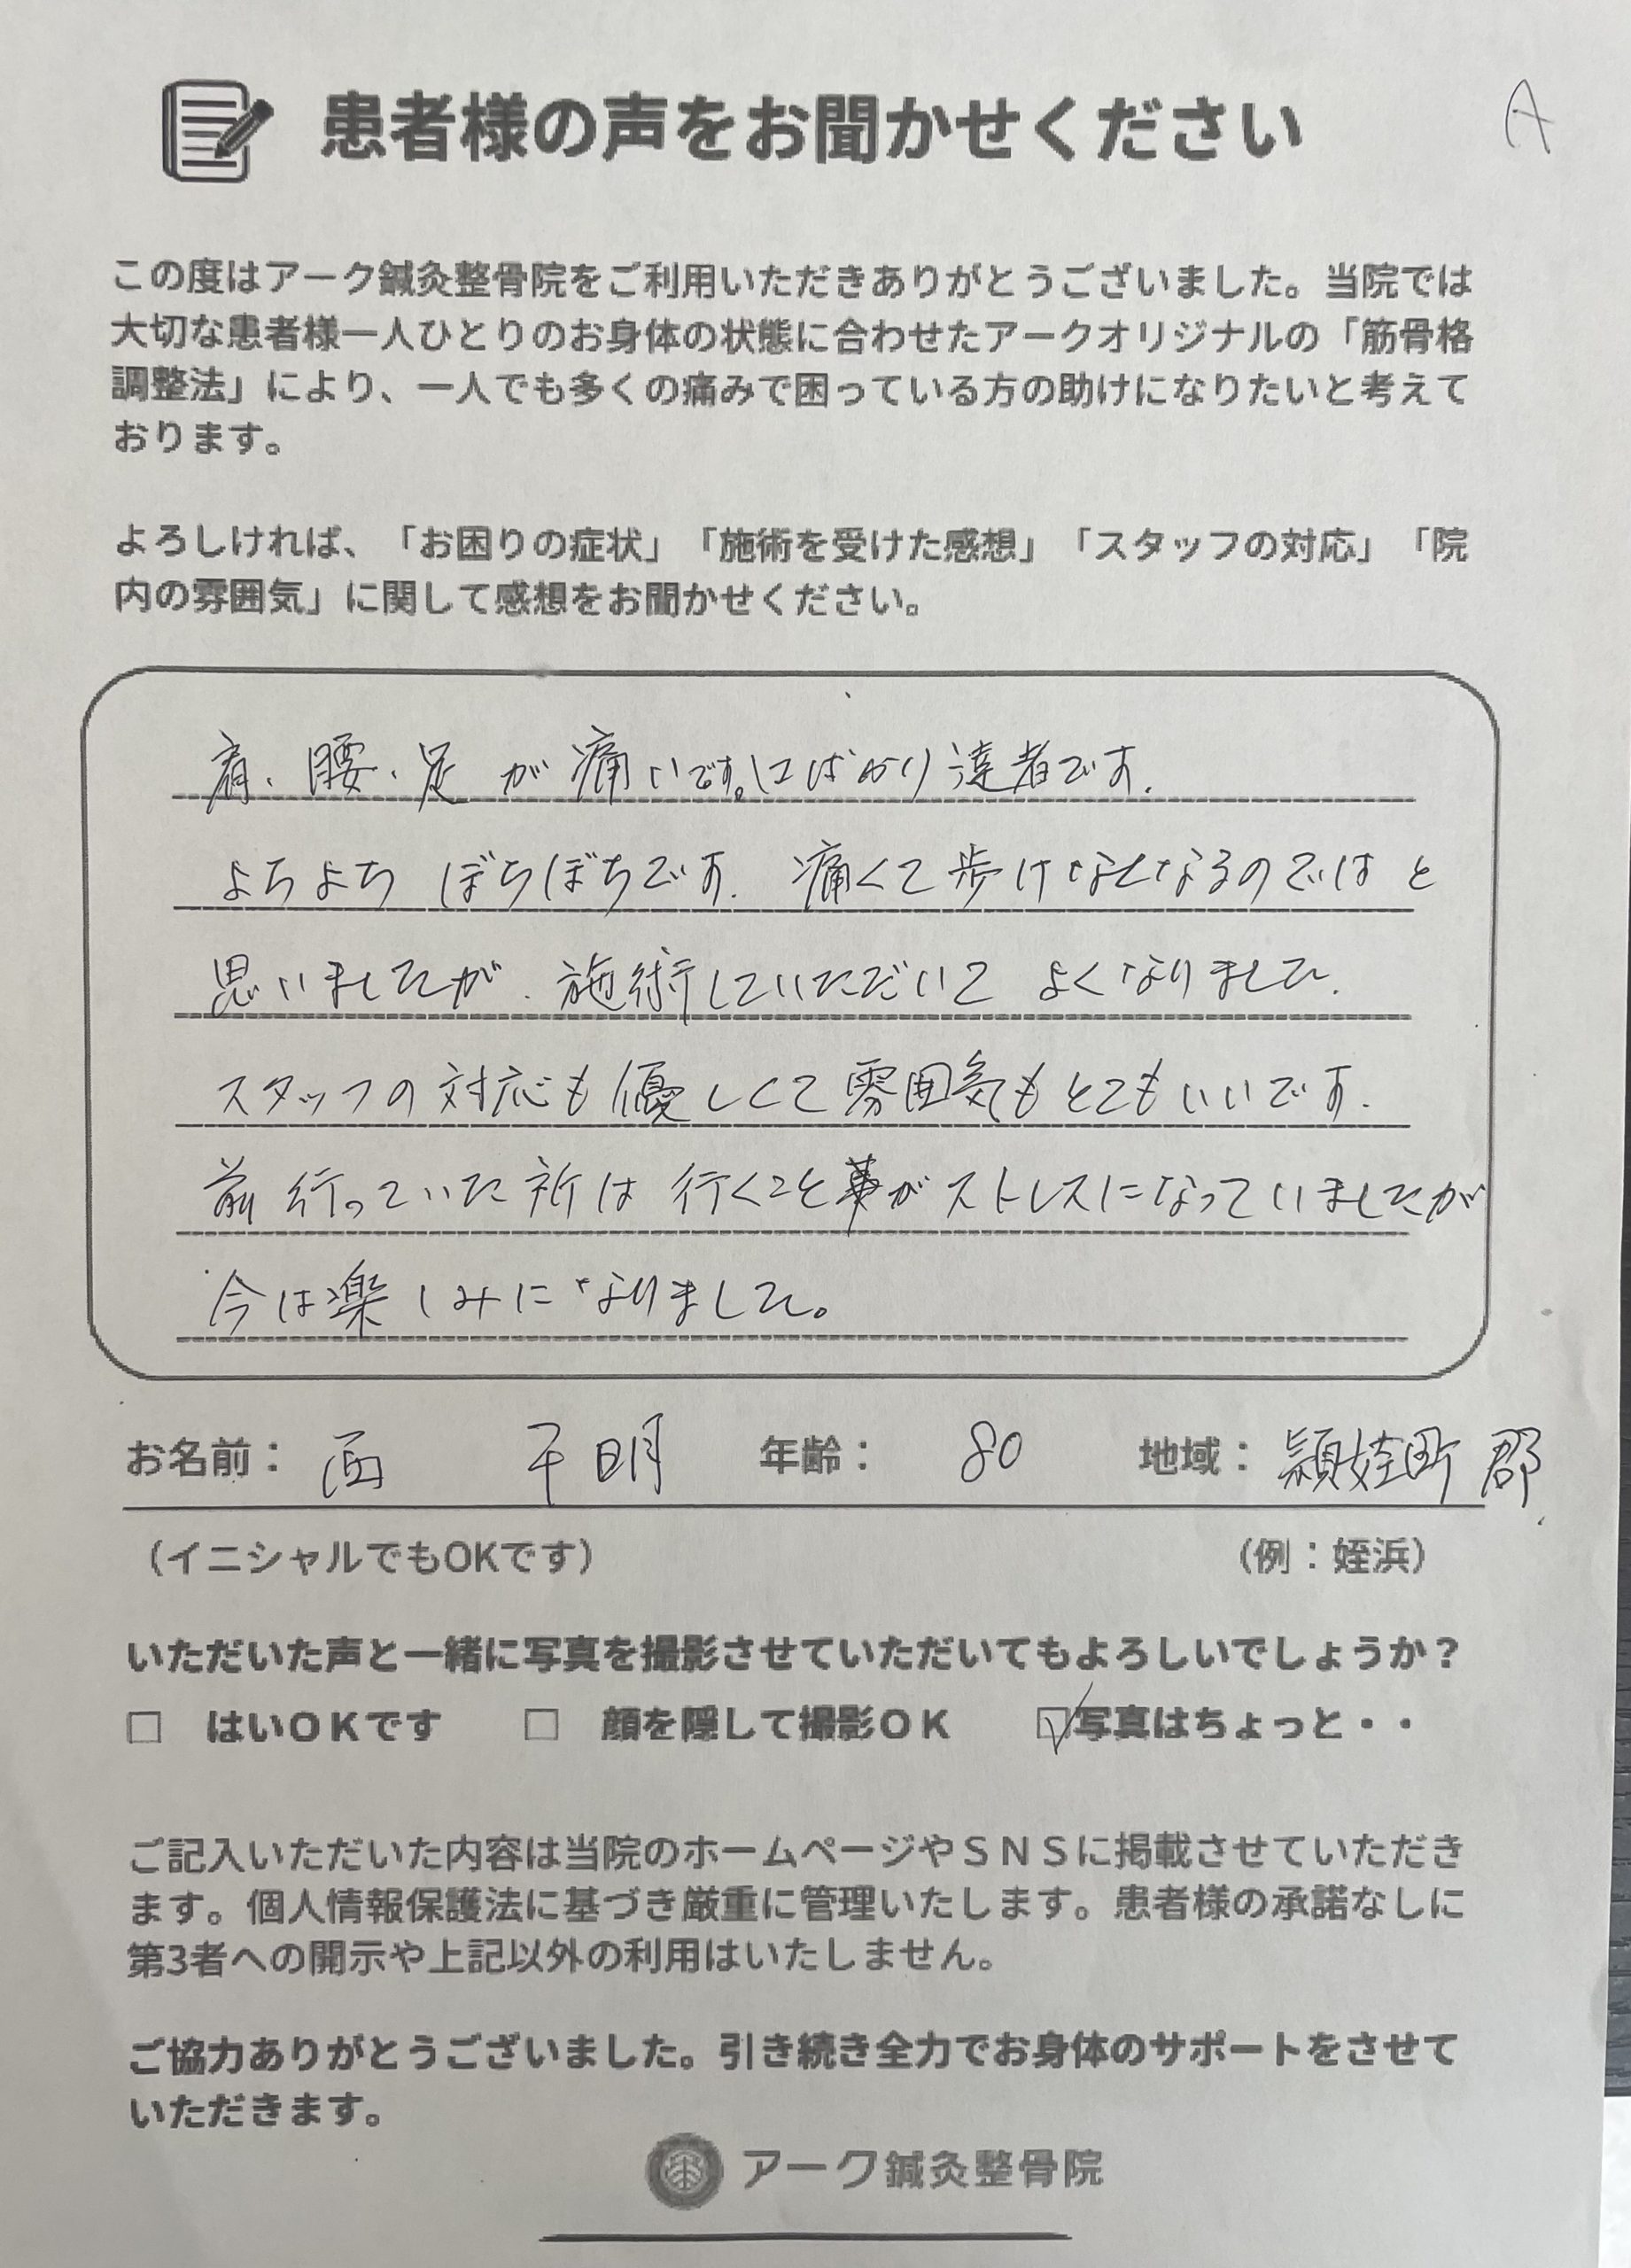 患者様の声をお聞かせください
A
この度はアーク鍼灸整骨院をご利用いただきありがとうございました。当院では
大切な患者様一人ひとりのお身体の状態に合わせたアークオリジナルの「筋骨格
調整法」により、一人でも多くの痛みで困っている方の助けになりたいと考えて
おります。
よろしければ、「お困りの症状」「施術を受けた感想」「スタッフの対応」「院
内の雰囲気」に関して感想をお聞かせください。
肩、腰、足が痛いです。口ばかり達者です.
よちよちぼちぼちです. 痛くて歩けなくなるのではと
思いましたが、施術していただいてよくなりました.
スタッフの対応も優しくて雰囲気もとてもいいです.
前行っていた所は行くことがストレスになっていましたが
今は楽しみになりました。
お名前： 西 千明 年齢： 80 地域： 頴娃町 郡
（イニシャルでもOKです） （例：姪浜）
いただいた声と一緒に写真を撮影させていただいてもよろしいでしょうか？
□ はいＯＫです □ 顔を隠して撮影ＯＫ ☑写真はちょっと・・
ご記入いただいた内容は当院のホームページやＳＮＳに掲載させていただき
ます。個人情報保護法に基づき厳重に管理いたします。患者様の承諾なしに
第3者への開示や上記以外の利用はいたしません。
ご協力ありがとうございました。引き続き全力でお身体のサポートをさせて
いただきます。
アーク鍼灸整骨院